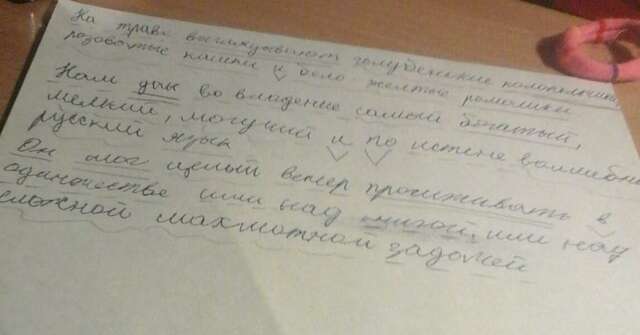 На траве выглядывают голубенькие колокольчики,
розоватые кашки и бело желтые ромашки
Нам дан во владение самый богатый,
меткий, могучий и по истене волшебный
русский язык
Он мог целый вечер просиживать в
одиночестве или над книгой, или над
сложной махмотной задачей